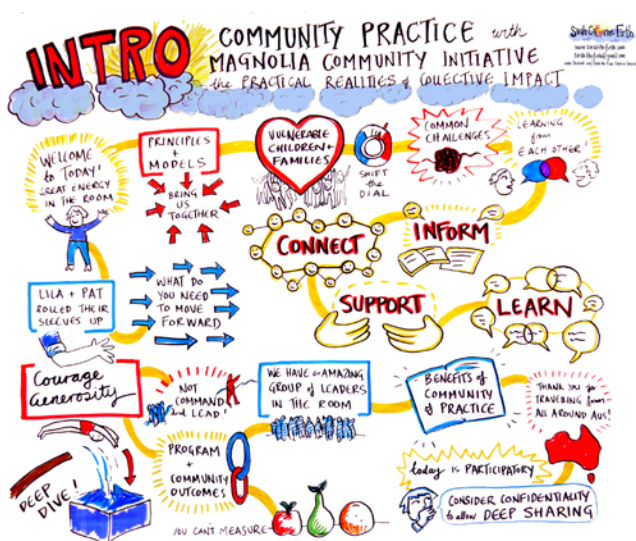 INTRO
COMMUNITY PRACTICE with
MAGNOLIA COMMUNITY INITIATIVE
the PRACTICAL REALITIES of COLLECTIVE IMPACT
WELCOME
to TODAY!
GREAT ENERGY
IN THE ROOM
PRINCIPLES
+
MODELS
BRING
US
TOGETHER
VULNERABLE
CHILDREN +
FAMILIES
SHIFT
the
DIAL
COMMON
CHALLENGES
LEARNING
from
EACH OTHER!
CONNECT
INFORM
SUPPORT
LEARN
LILA + PAT
ROLLED THEIR
SLEEVES UP
WHAT DO
YOU NEED
TO MOVE
FORWARD
Courage
Generosity
NOT
COMMAND
and LEAD!
WE HAVE an AMAZING
GROUP of LEADERS
IN THE ROOM
BENEFITS of
COMMUNITY
of PRACTICE
THANK YOU for
TRAVELLING from
ALL AROUND AUS!
DEEP
DIVE!
PROGRAM
+
COMMUNITY
OUTCOMES
YOU CAN'T MEASURE
today IS PARTICIPATORY
CONSIDER CONFIDENTIALITY
to allow DEEP SHARING